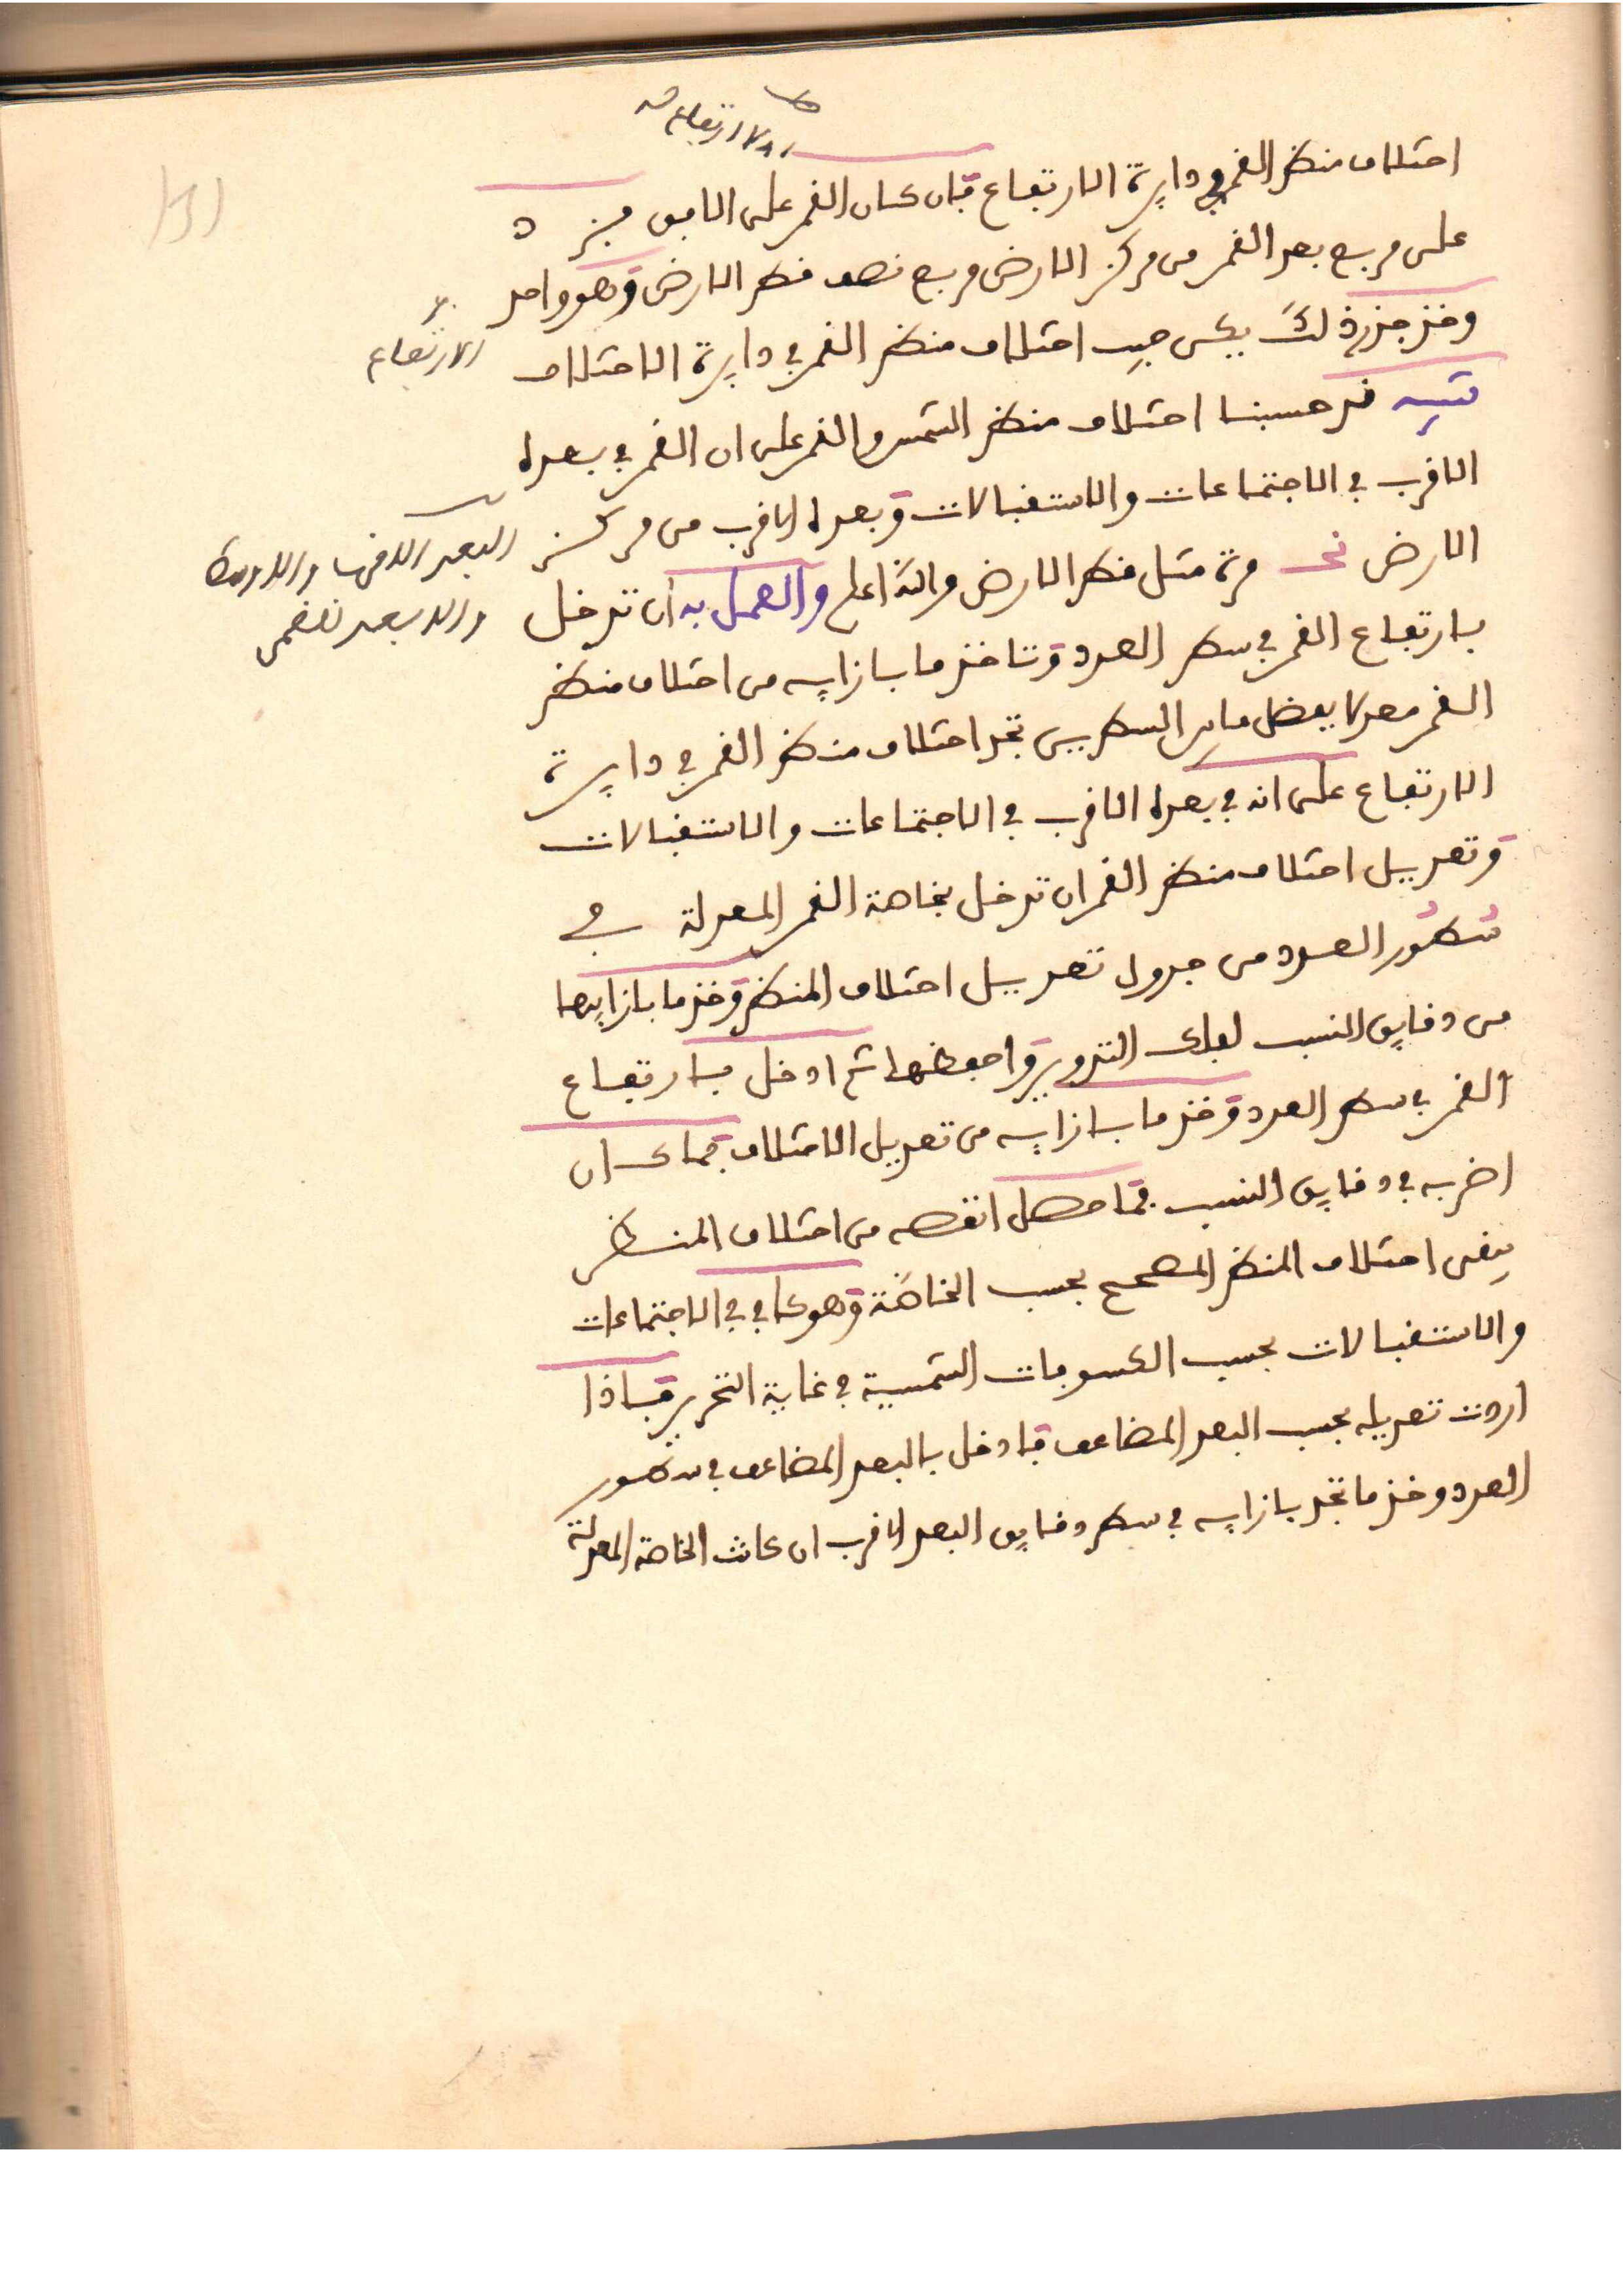 اختلاف منظر القمر في دايرة الارتفاع فان كان القمر على الافق فزد
على مربع بعد القمر من مركز الارض مربع نصف قطر الارض وهو واحد
وخذ جذر ذلك يكن جيب اختلاف منظر القمر في دايرة الاختلاف
الارتفاع
تنبيه قد حسبنا اختلاف منظر الشمس والقمر على ان القمر في بعده
الاقرب في الاجتماعات والاستقبالات وبعده الاقرب من مركز
الارض نحـ مرة مثل قطر الارض والله اعلم والعمل به ان تدخل
بارتفاع القمر في سطر العدد وتاخذ ما بازايه من اختلاف منظر
القمر معدلا بفضل ما بين السطرين تجد اختلاف منظر القمر في دايرة
الارتفاع على انه في بعده الاقرب في الاجتماعات والاستقبالات
وتعديل اختلاف منظر القمر ان تدخل بخاصة القمر المعدلة في
سطور العدد من جدول تعديل اختلاف المنظر وخذ ما بازايها
من دقايق النسب لفلك التدوير واحفظها ثم ادخل بارتفاع
القمر في سطر العدد وخذ ما بازايه من تعديل الاختلاف فما كان
اضربه في دقايق النسب فما حصل انقصه من اختلاف المنظر
يبقى اختلاف المنظر المصحح بحسب الخاصة وهو كاف في الاجتماعات
والاستقبالات بحسب الكسوفات الشمسية في غاية التحرير فاذا
اردت تعديله بحسب البعد المضاعف فادخل بالبعد المضاعف في سطور
العدد وخذ ما تجد بازايه في سطر دقايق البعد الاقرب ان كانت الخاصة المعدلة